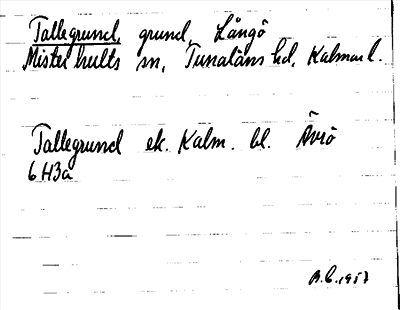 Tallegrund, grund, Långö
Misterhults sn, Tunaläns hd, Kalmar l.
Tallegrund ek. Kalm. bl. Ävrö
6H3a
B.C. 1957